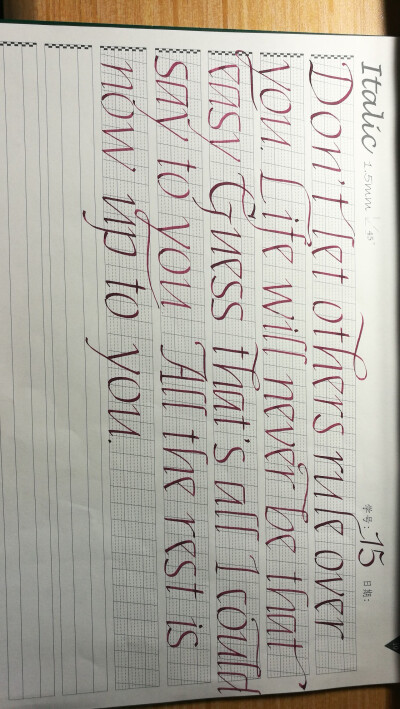 Italic 1.5mm 45° 学号: 15 日期:
Don't let others rule over
you. Life will never be that
easy Guess that's all I could
say to you All the rest is
now up to you.